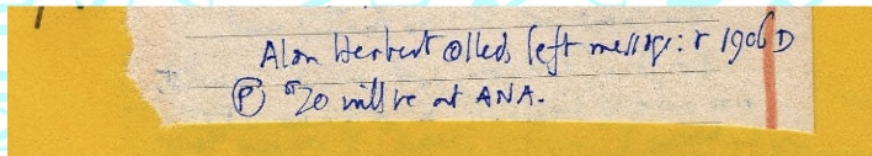 Alan Herbert called, left message: r 1906 D
Ⓟ $20 will be at ANA.